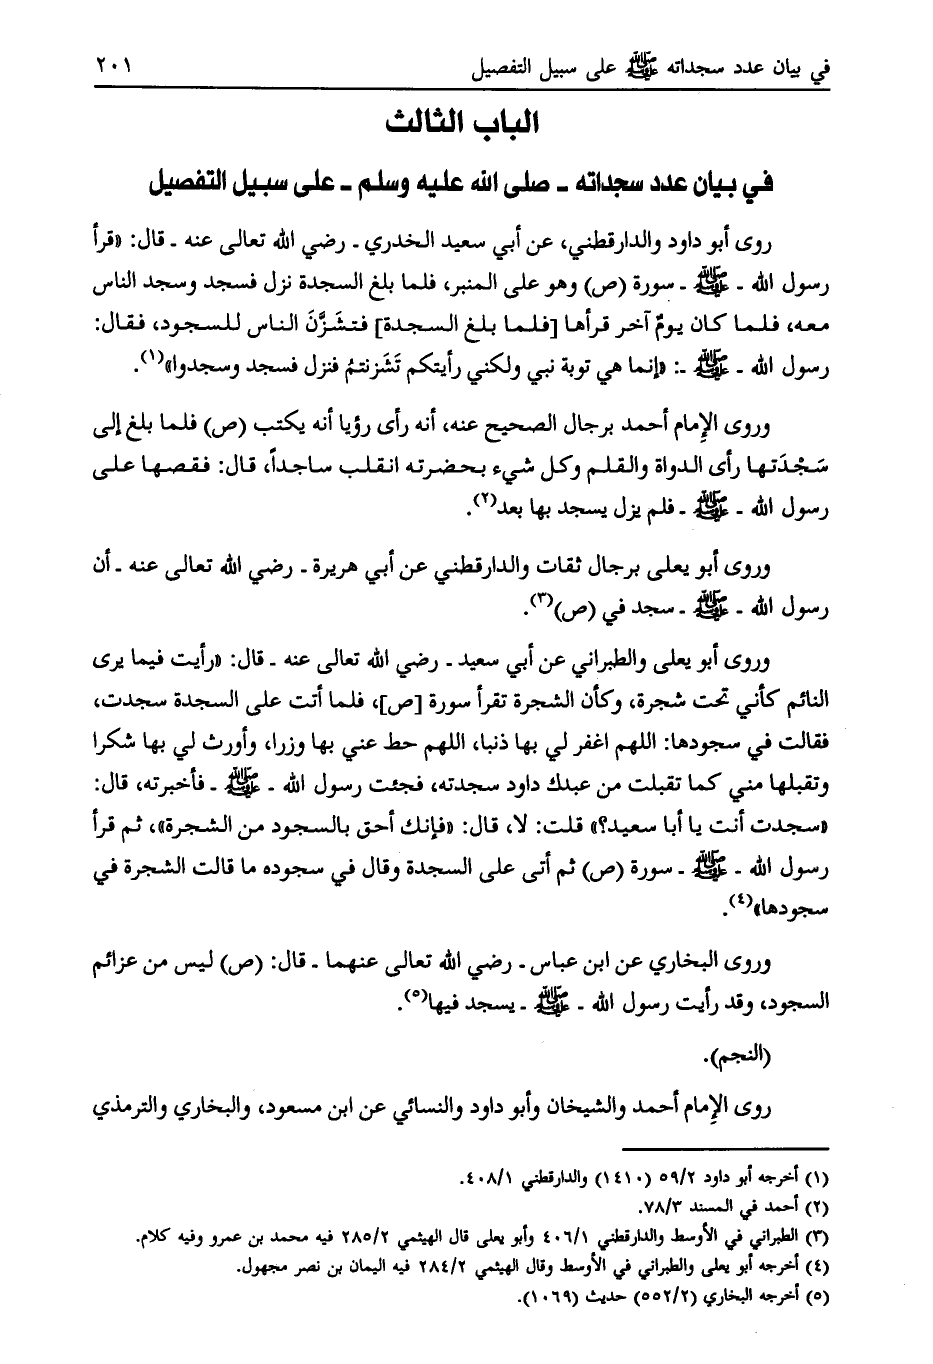 في بيان عدد سجداته ﷺ على سبيل التفصيل ٢٠١
الباب الثالث
في بيان عدد سجداته ـ صلى الله عليه وسلم ـ على سبيل التفصيل
روى أبو داود والدارقطني، عن أبي سعيد الخدري ـ رضي الله تعالى عنه ـ قال: «قرأ
رسول الله ـ ﷺ ـ سورة (ص) وهو على المنبر، فلما بلغ السجدة نزل فسجد وسجد الناس
معه، فلما كان يومٌ آخر قرأها [فلما بلغ السجدة] فتشَزَّنَ الناس للسجود، فقال:
رسول الله ـ ﷺ ـ: «إنما هي توبة نبي ولكني رأيتكم تَشَزنتمُ فنزل فسجد وسجدوا»(١).
وروى الإمام أحمد برجال الصحيح عنه، أنه رأى رؤيا أنه يكتب (ص) فلما بلغ إلى
سَجْدَتها رأى الدواة والقلم وكل شيء بحضرته انقلب ساجداً، قال: فقصها على
رسول الله ـ ﷺ ـ فلم يزل يسجد بها بعد(٢).
وروى أبو يعلى برجال ثقات والدارقطني عن أبي هريرة ـ رضي الله تعالى عنه ـ أن
رسول الله ـ ﷺ ـ سجد في (ص)(٣).
وروى أبو يعلى والطبراني عن أبي سعيد ـ رضي الله تعالى عنه ـ قال: «رأيت فيما يرى
النائم كأني تحت شجرة، وكأن الشجرة تقرأ سورة [ص]، فلما أتت على السجدة سجدت،
فقالت في سجودها: اللهم اغفر لي بها ذنبا، اللهم حط عني بها وزرا، وأورث لي بها شكرا
وتقبلها مني كما تقبلت من عبدك داود سجدته، فجئت رسول الله ـ ﷺ ـ فأخبرته، قال:
«سجدت أنت يا أبا سعيد؟» قلت: لا، قال: «فإنك أحق بالسجود من الشجرة»، ثم قرأ
رسول الله ـ ﷺ ـ سورة (ص) ثم أتى على السجدة وقال في سجوده ما قالت الشجرة في
سجودها»(٤).
وروى البخاري عن ابن عباس ـ رضي الله تعالى عنهما ـ قال: (ص) ليس من عزائم
السجود، وقد رأيت رسول الله ـ ﷺ ـ يسجد فيها(٥).
(النجم).
روى الإمام أحمد والشيخان وأبو داود والنسائي عن ابن مسعود، والبخاري والترمذي
(١) أخرجه أبو داود ٥٩/٢ (١٤١٠) والدارقطني ٤٠٨/١.
(٢) أحمد في المسند ٧٨/٣.
(٣) الطبراني في الأوسط والدارقطني ٤٠٦/١ وأبو يعلى قال الهيثمي ٢٨٥/٢ فيه محمد بن عمرو وفيه كلام.
(٤) أخرجه أبو يعلى والطبراني في الأوسط وقال الهيثمي ٢٨٤/٢ فيه اليمان بن نصر مجهول.
(٥) أخرجه البخاري (٥٥٢/٢) حديث (١٠٦٩).